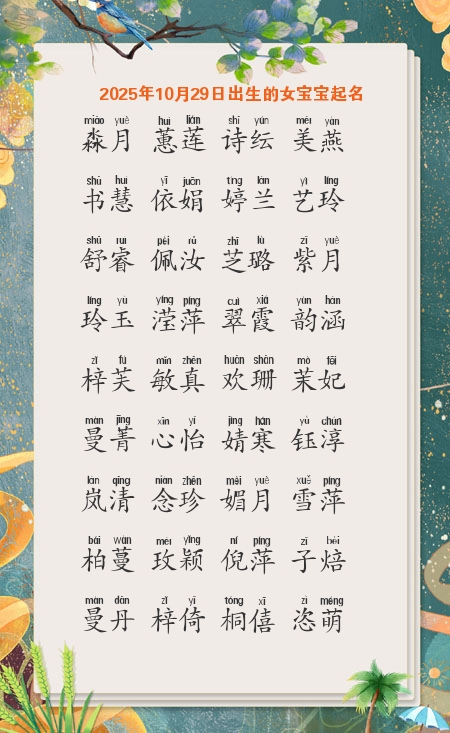 2025年10月29日出生的女宝宝起名
miǎo yuè huì lián shī yún měi yàn
淼月 蕙莲 诗纭 美燕
shū huì yī juān tíng lán yì líng
书慧 依娟 婷兰 艺玲
shū ruì pèi rǔ zhī lù zǐ yuè
舒睿 佩汝 芝璐 紫月
líng yù yíng píng cuì xiá yùn hán
玲玉 滢萍 翠霞 韵涵
zǐ fú mǐn zhēn huān shān mò fēi
梓芙 敏真 欢珊 茉妃
màn jīng xīn yí jìng hán yù chún
曼菁 心怡 婧寒 钰淳
lán qīng niàn zhēn mèi yuè xuě píng
岚清 念珍 媚月 雪萍
bǎi wàn méi yǐng ní píng zǐ bèi
柏蔓 玫颖 倪萍 子焙
màn dān zǐ yǐ tóng xī zì méng
曼丹 梓倚 桐僖 恣萌